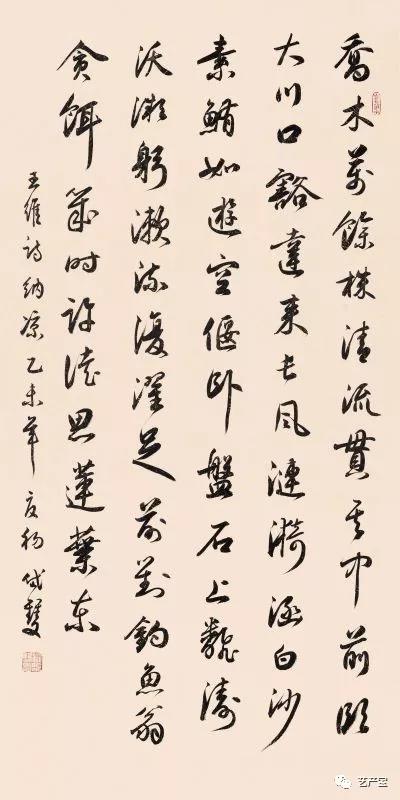 喬木萬餘株清流貫其中前臨
大川口豁達来長風漣漪涵白沙
素鮪如遊空偃卧盤石上飜濤
沃微躬漱流復濯足前對釣魚翁
貪餌时許徒思蓮葉东
王維詩納凉乙未年夏初
艺产宝